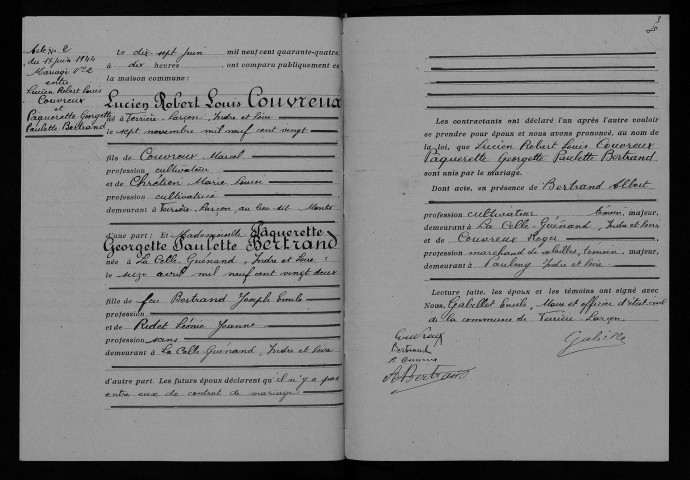 Acte No 2
du 17 juin 1944
Mariage No 2
entre
Lucien Robert Louis
Couvreux
et
Paquerette Georgette
Paulette Bertrand
Le dix sept juin mil neuf cent quarante-quatre
à dix heures, ont comparu publiquement en
la maison commune:
Lucien Robert Louis Couvreux
né à Ferrière-Larçon, Indre et Loire
le sept novembre mil neuf cent vingt
fils de Couvreux Marcel
profession cultivateur
et de Chrétien Marie Louise
profession cultivatrice
demeurant à Ferrière Larçon, au lieu dit
d'une part: Et Mademoiselle Paquerette
Georgette Paulette Bertrand
née à La Celle Guénand, Indre et Loire
le seize avril mil neuf cent vingt deux
fille de feu Bertrand Joseph Emile
profession
et de Ridet Léonie Jeanne
profession sans
demeurant à La Celle Guénand, Indre et Loire
d'autre part. Les futurs époux déclarent qu'il n'y a pas
entre eux de contrat de mariage
Les contractants ont déclaré l'un après l'autre vouloir
se prendre pour époux et nous avons prononcé, au nom de
la loi, que Lucien Robert Louis Couvreux
Paquerette Georgette Paulette Bertrand
sont unis par le mariage.
Dont acte, en présence de Bertrand Albert
profession cultivateur témoin, majeur,
demeurant à La Celle Guénand, Indre et Loire
et de Couvreux Roger
profession marchand de volailles, témoin, majeur,
demeurant à Paulmy Indre et Loire.
Lecture faite, les époux et les témoins ont signé avec
Nous, Gabillet Emile, Maire et officier d'état civil
de la commune de Ferrière-Larçon.
Couvreux
Bertrand
A Bertrand